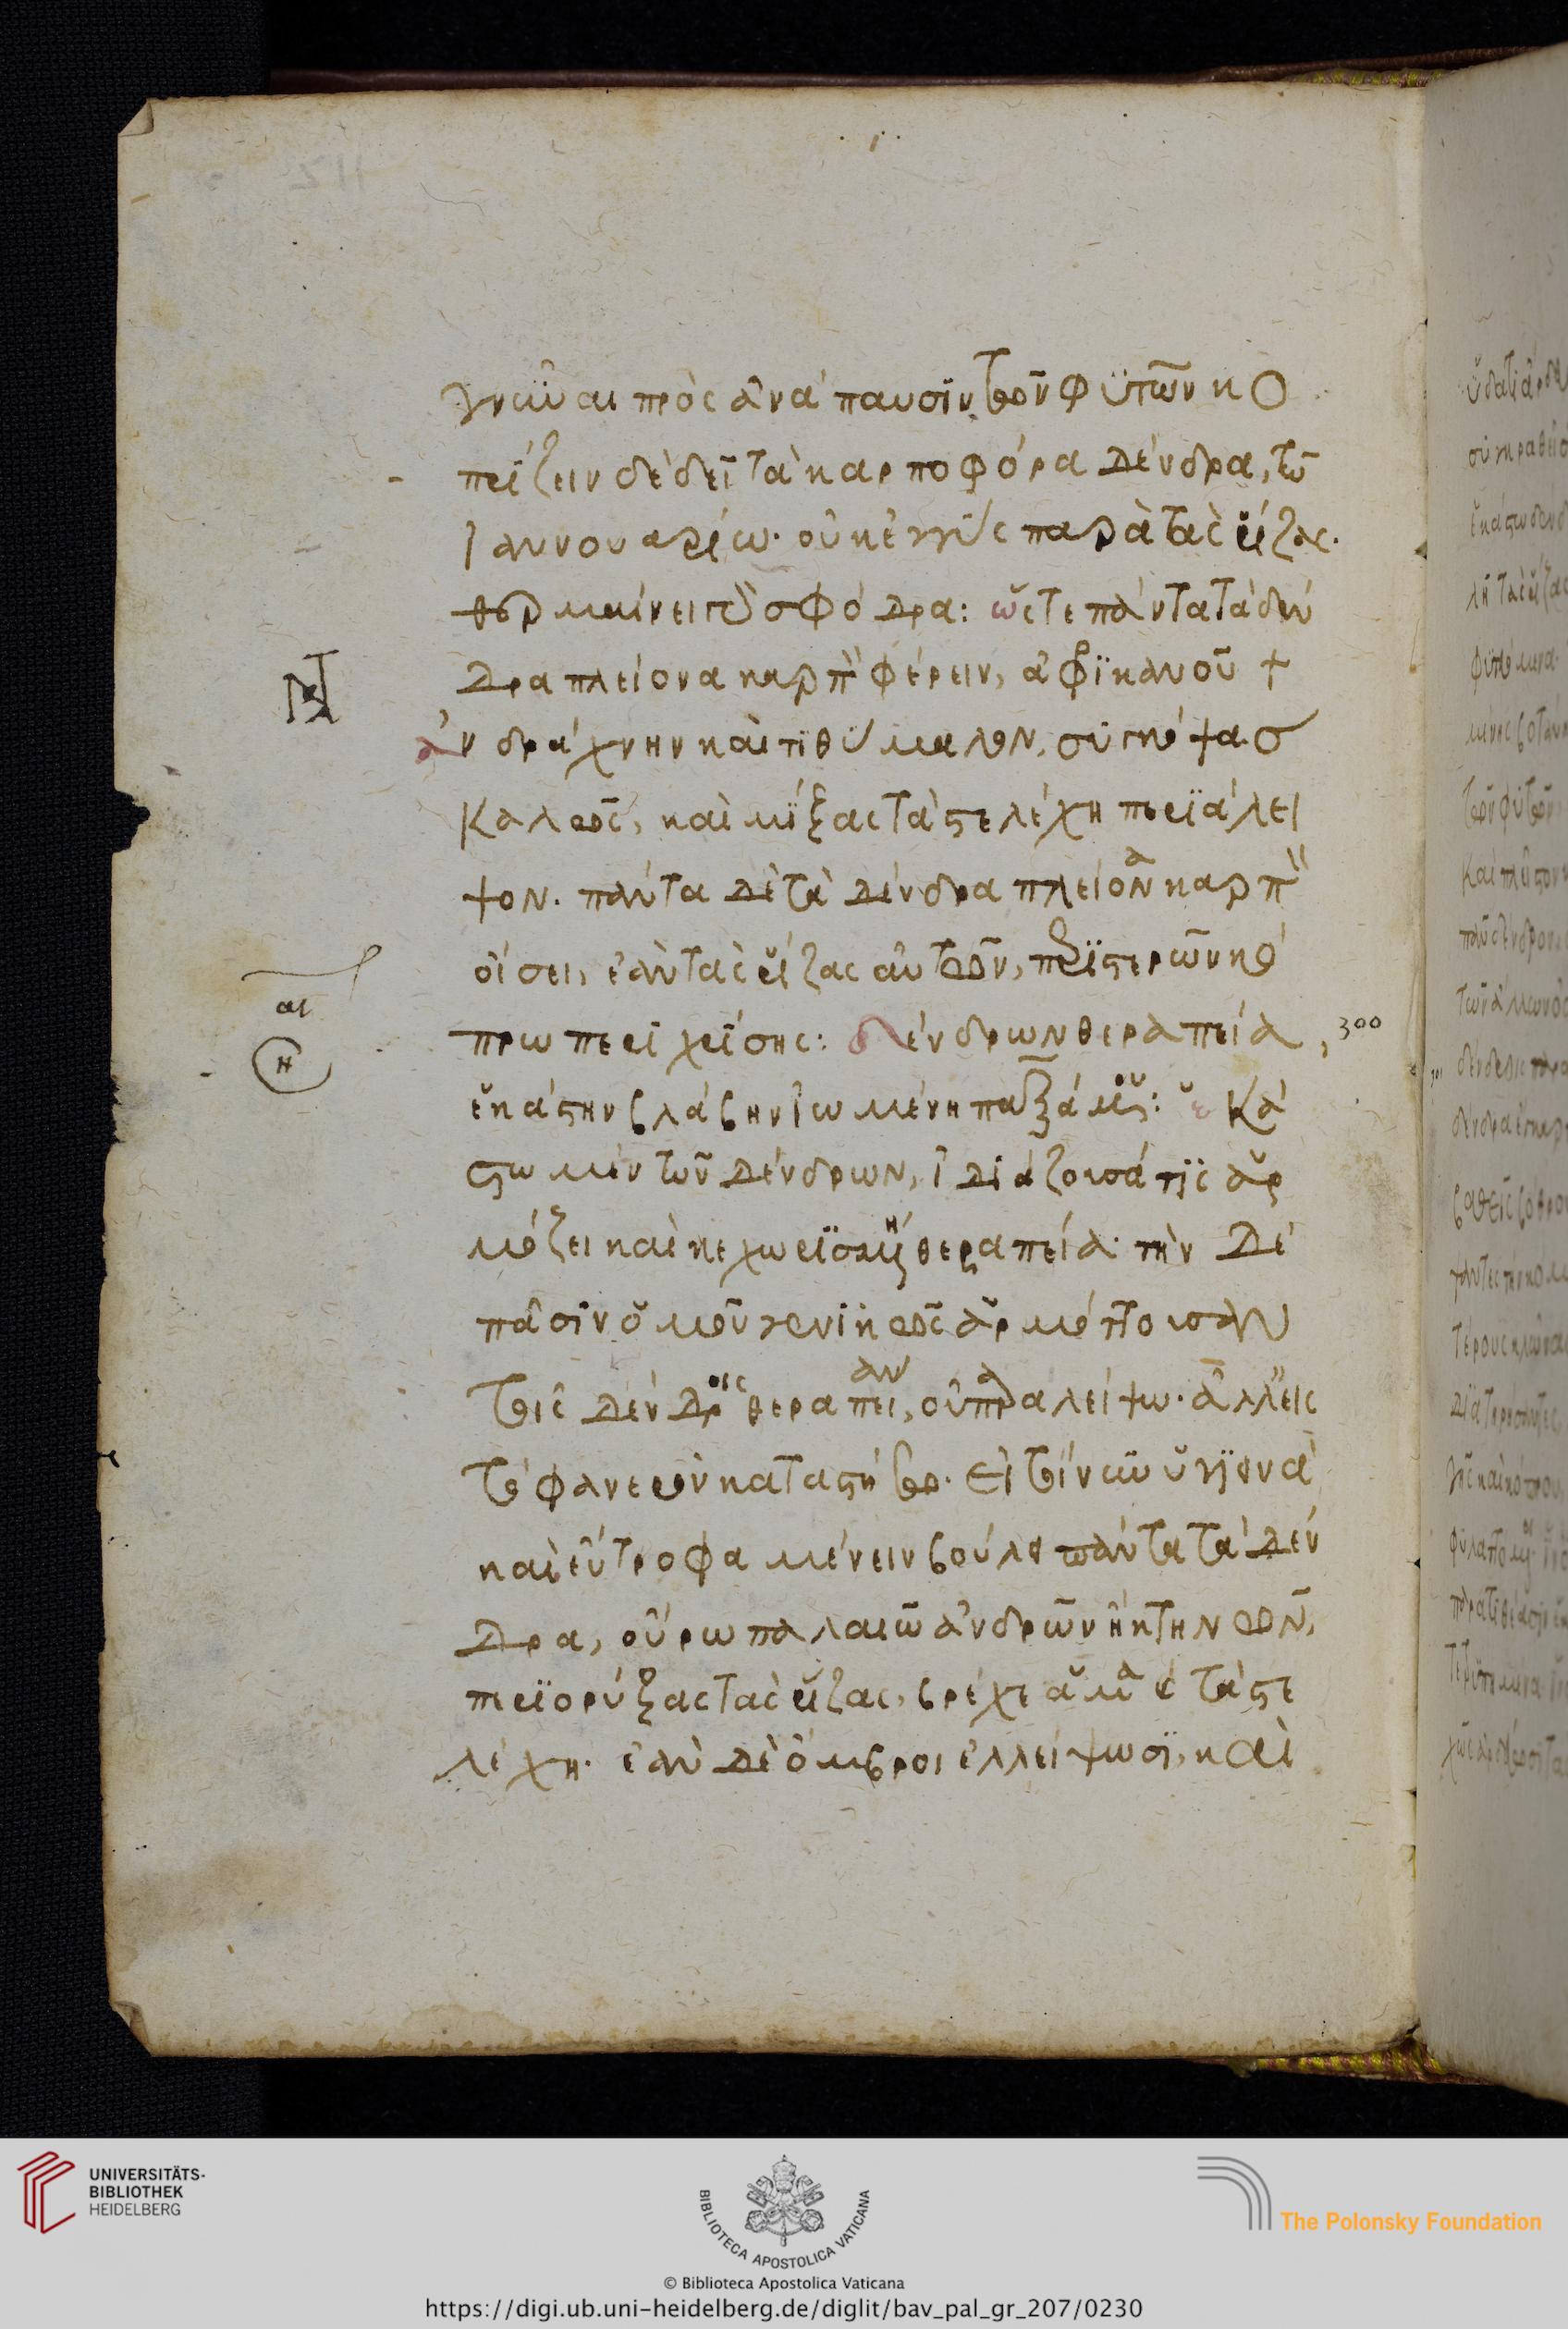 γνῶναι πρὸς ἀνάπαυσιν τῶν φυτῶν κο
πρίζειν δὲ δεῖ τὰ καρποφόρα δένδρα, τῶ
Ἰαννουαρίω· οὐκ ἐγγὺς παρὰ τὰς ῥίζας·
θερμαίνει γὰρ σφόδρα: ὥστε πάντα τὰ δέν
δρα πλείονα καρπὸν φέρειν, ἀφικανοῦ +
ἀνδράχνην καὶ τιθύμαλον, συγκόψασ
καλῶς, καὶ μίξας τὰ στελέχη περιάλει
ψον. πάντα δὲ τὰ δένδρα πλείονα καρπὸν
οἴσει, ἐὰν τὰς ῥίζας αὐτῶν, περιστερῶν κό
πρω περιχρίσης: δένδρων θεραπεία, 300
ἑκάστην βλάβην ἰωμένη παξάμου: ἑκά
στω μὲν τῶν δένδρων, ἰδιάζουσά τις ἁρ
μόζει καὶ κεχωρισμένη θεραπεία· τὴν δὲ
πᾶσιν ὁμοῦ γενικῶς ἁρμόττουσαν
τοῖς δένδροις θεραπείαν, οὐ παραλείψω· ἀλλ' εἰς
τὸ φανερὸν καταστήσω. Εἰ τοίνυν ὑγιεινὰ
καὶ εὔτροφα μένειν βούλει πάντα τὰ δέν
δρα, οὔρω παλαιῶ ἀνδρῶν ἢ κτηνῶν,
περιορύξας τὰς ῥίζας, βρέχε ἅμα καὶ τὰ στε
λέχη. ἐὰν δὲ ὄμβροι ἐλλείψωσι, καὶ
αι
η
UNIVERSITÄTS-
BIBLIOTHEK
HEIDELBERG
BIBLIOTECA APOSTOLICA VATICANA
The Polonsky Foundation
© Biblioteca Apostolica Vaticana
https://digi.ub.uni-heidelberg.de/diglit/bav_pal_gr_207/0230